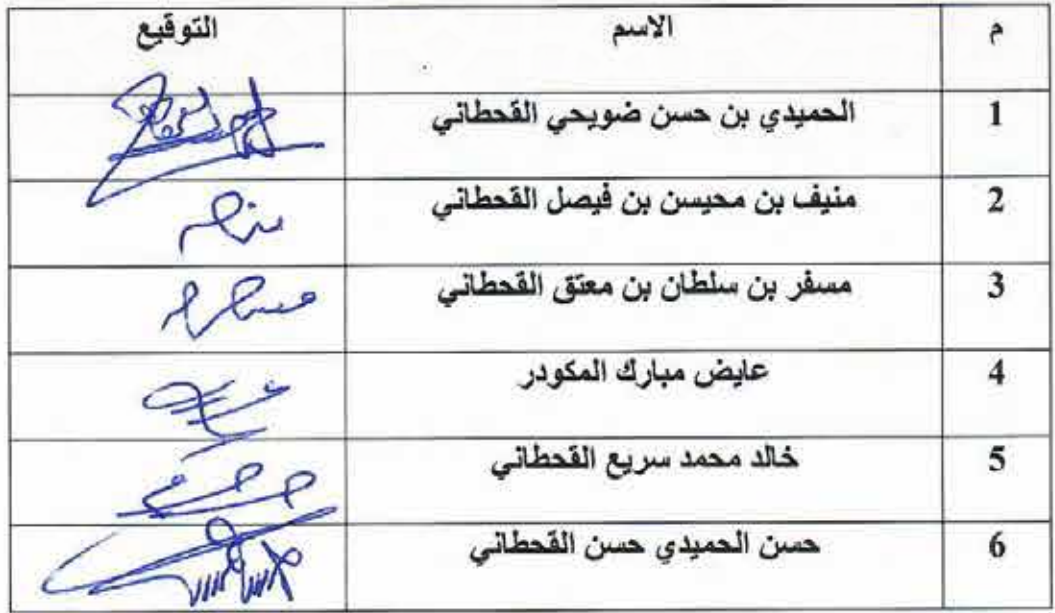 م الاسم التوقيع
1 الحميدي بن حسن ضويحي القحطاني
2 منيف بن محيسن بن فيصل القحطاني
3 مسفر بن سلطان بن معتق القحطاني
4 عايض مبارك المكودر
5 خالد محمد سريع القحطاني
6 حسن الحميدي حسن القحطاني